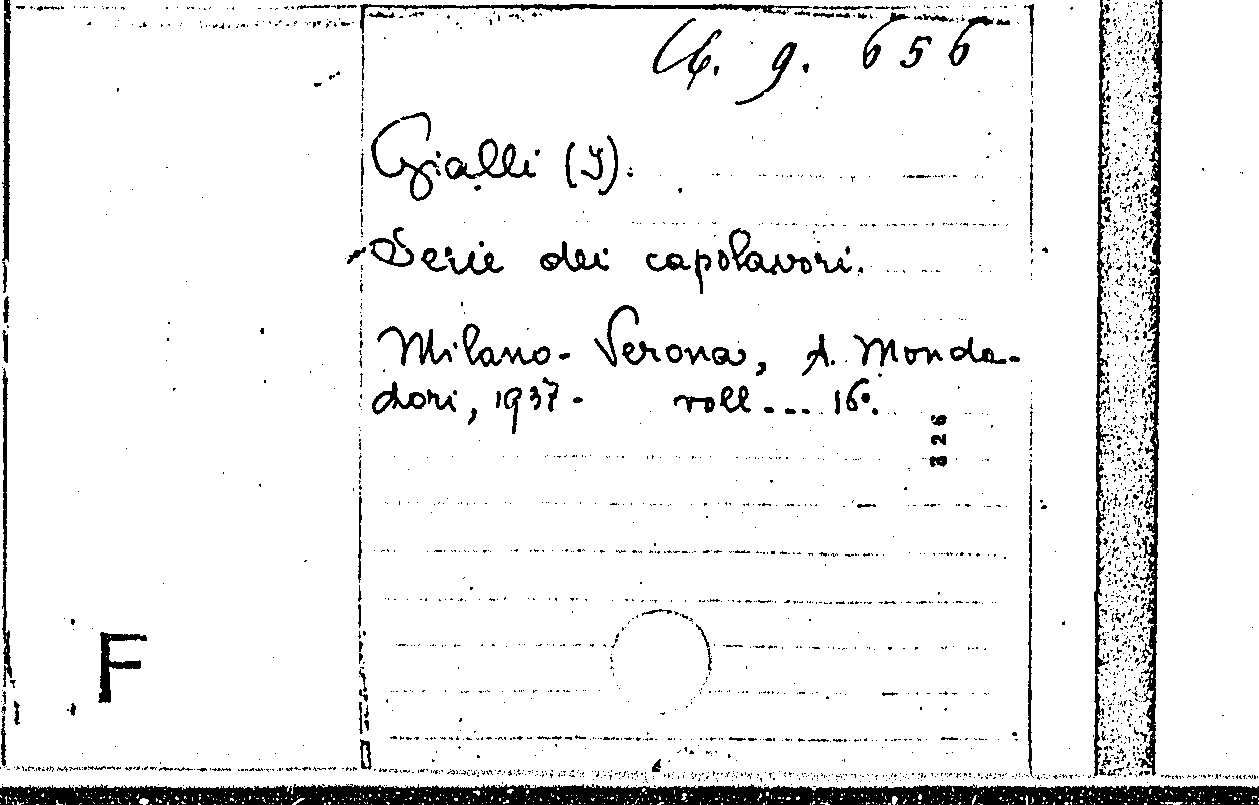 g. 656
Gialli (I).
Serie dei capolavori.
Milano-Verona, A. Monda-
dori, 1937- voll... 16°.
326
F